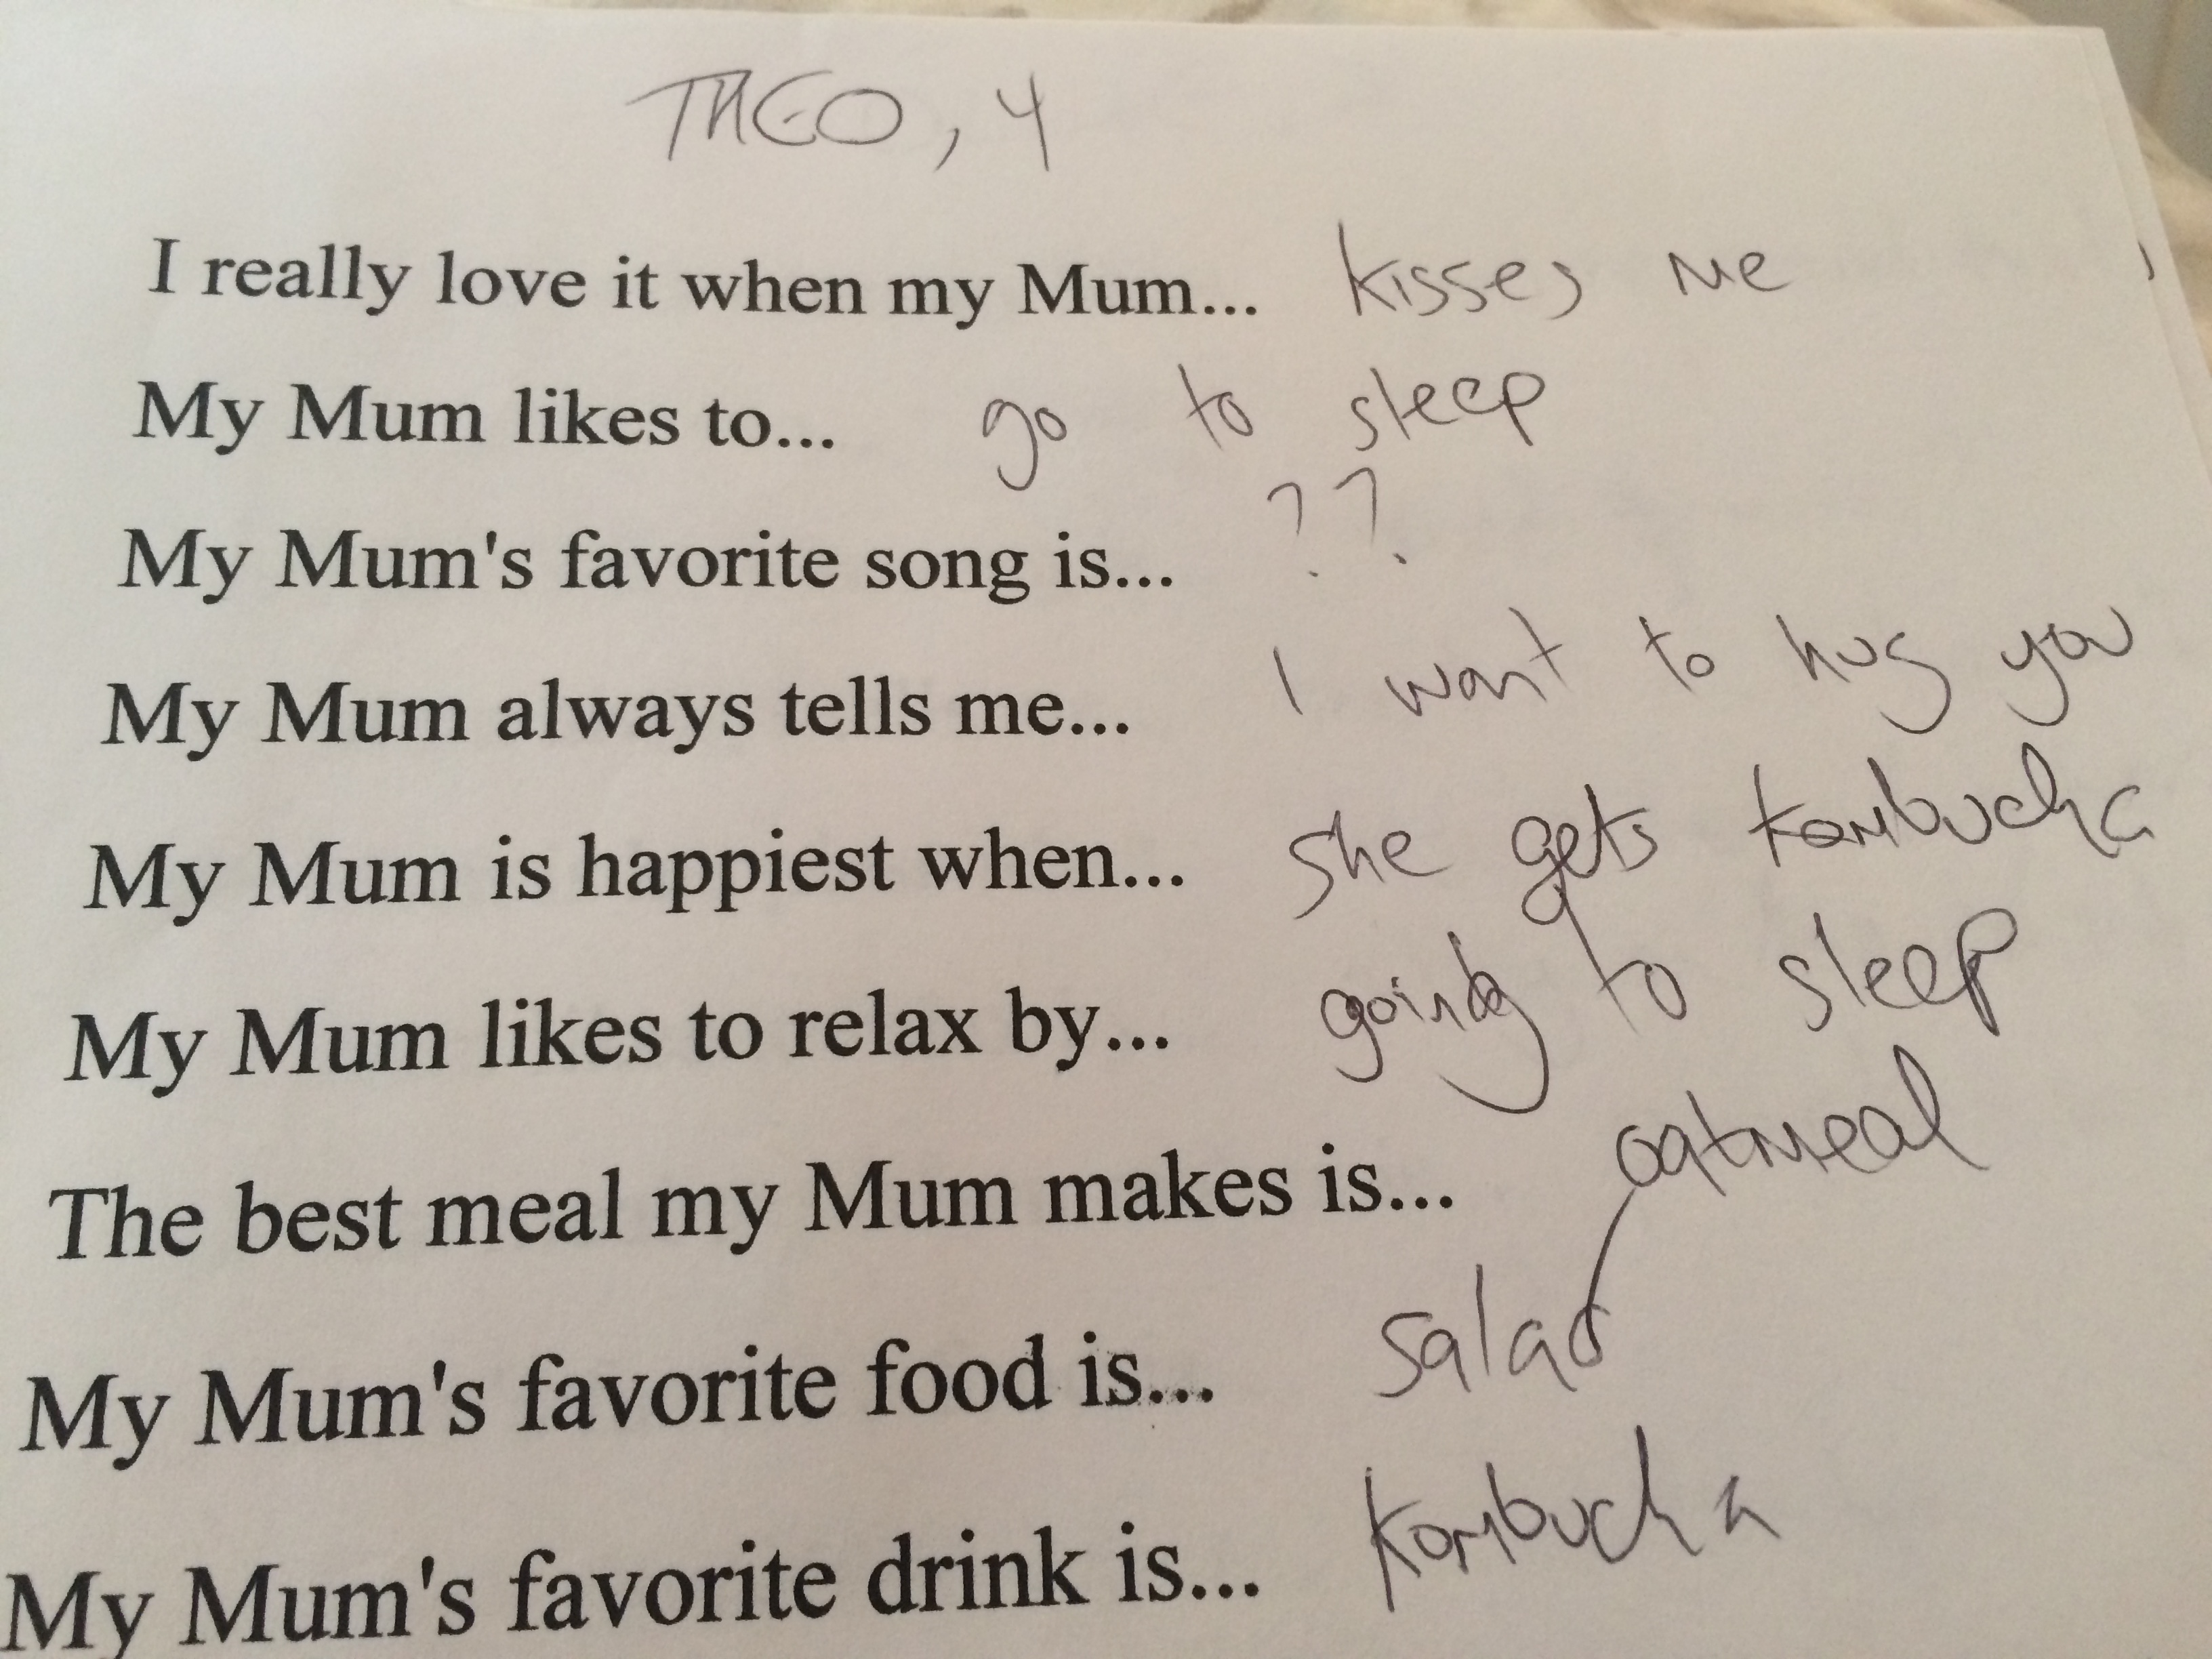 THEO, 4
I really love it when my Mum... kisses me
My Mum likes to... go to sleep
My Mum's favorite song is... ??
My Mum always tells me... I want to hug you
My Mum is happiest when... she gets kombucha
My Mum likes to relax by... going to sleep
The best meal my Mum makes is... oatmeal
My Mum's favorite food is... salad
My Mum's favorite drink is... kombucha